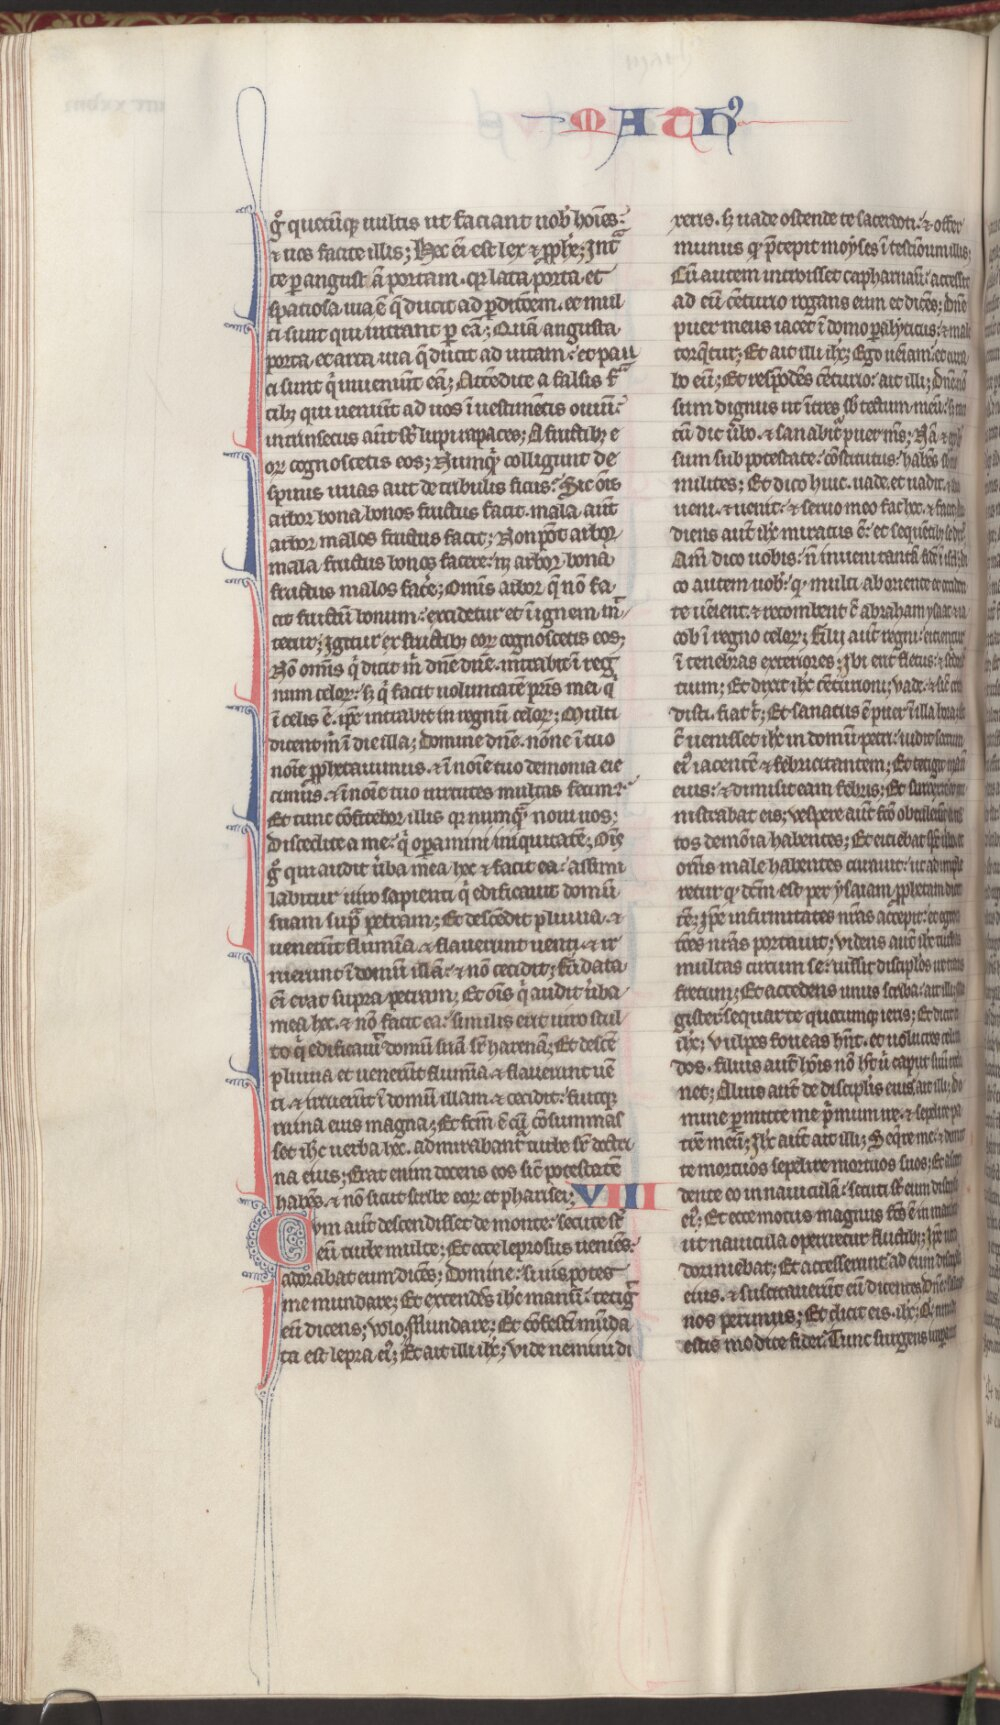 MATH⁹
g̊ quecūq; uultis ut faciant uob̛ hoīes:
⁊ uos facite illis; Hec eī est lex ⁊ ꝓph̛e; Int̃
te ꝑ angustā portam. qr̛ lata porta et
spatiosa uia ē q̄ ducit ad ꝑditōem. et mul
ti sunt qui intrant ꝑ eā; Quā angusta
porta. et arta uia q̄ ducit ad uitam: et pau
ci sunt q̛ inueniūt eā; Attendite a falsis ꝓ
tib; qui ueniūt ad uos ī uestimētis ouiū:
intrinsecus aūt sт̄ lupi rapaces; A fructib; e
oꝝ cognoscetis eos; Nunqͥ̄ colligunt de
spinis uuas aut de tribulis ficus: Sic oīs
arbor bona bonos fructus facit. mala aūt
arbor malos fructus facit; Non pōt arbor
mala fructus bonos facere: neq̛ arbor bona
fructus malos fac̛e; Omīs arbor q̄ nō fa
cit fructū bonum: excidetur et ī ignem mi
tetur; Igitur ex fructib; eoꝝ cognoscetis eos;
Nō omīs q̛ dicit m̛ dn̄e dn̄e. intrabit ī reg
num celoꝝ: sꝫ q̛ facit uoluntatē pr̄is mei q̛
ī celis ē. ip̄e intrabit in regnū celoꝝ; Multi
dicent m̛ ī die illa; Domine dn̄e. nōne ī tuo
noīe ꝓphetauimus. ⁊ ī noīe tuo demonia eie
cimus. ⁊ ī noīe tuo uirtutes multas fecim⁹:
Et tunc cōfitebor illis qr̛ numqͣ̄ noui uos;
Discedite a me: q̛ oꝑamini iniquitatē; Oīs
g̊ qui audit ūba mea hec ⁊ facit ea: assimi
labitur uiro sapienti q̛ edificauit domū
suam supͣ petram; Et descēdit pluuia. ⁊
uenerūt flumīa. ⁊ flauerunt uenti. ⁊ ir
ruerunt ī domū illā: ⁊ nō cecidit; fūdata
eī erat supra petram; Et oīs q̛ audit ūba
mea hec. ⁊ nō facit ea: similis erit uiro stul
to q̛ edificauit domū suā sr̄ harenā; Et descē
pluuia et uenerūt flumīa. ⁊ flauerunt uē
ti. ⁊ irruerūt ī domū illam. ⁊ cecidit: fuitq;
ruina eius magna; Et fcm̄ ē cū cōsummas
set ih̄c uerba hec. admirabant̃ turbe sr̄ doctri
na eius; Erat enim docens eos sic̄ potestatē
habēs. ⁊ nō sicut scribe eoꝝ et pharisei; VIII
Cum aūt descendisset de monte: secute sт̄
eū turbe multe; Et ecce leprosus ueniēs.
adorabat eum dicēs; Domine: si uis potes
me mundare; Et extendēs ih̄c manū: tetig̛
eū dicens; Uolo. Mundare; Et cōfestī mūda
ta est lepra ei⁹; Et ait illi ih̄c; Vide nemini di
xeris. sꝫ uade ostende te sacerdoti: ⁊ offer
munus qͩ p̄cepit moyses ī testōium illis;
Cū autem introisset capharnaū: accessit
ad eū cēturio rogans eum et dicēs; Dn̄e
puer meus iacet ī domo paͣlyticus: ⁊ male
torq̄tur; Et ait illi ih̄c; Ego ueīam: et cura
bo eū; Et respōdēs cēturio: ait illi; Dn̄e nō
sum dignus ut ītres sб tectum meū: sꝫ tm̄
tū dic ūbo. ⁊ sanabit̃ puer m̄s; Nā ⁊ ego
sum sub potestate: cōstitutus: habēs sub
milites; Et dico huic. uade. et uadit. ⁊
ueni. ⁊ uenit: ⁊ seruo meo fac hec. ⁊ facit
diens aūt ih̄c miratus ē: et sequētib; se
Am̄ dico uobis: n̄ inueni tantā fidē ī isrl̄;
co autem uob̛: qͩ multi ab oriente et occiden
te ueīent. ⁊ recombent c̄ abraham ysaac ⁊ ia
cob ī regno celoꝝ; filii aūt regni: eicientur
ī tenebras exteriores; Ibi erit fletus: ⁊ stridor
tium; Et dixit ih̄c cēturioni; Vade. ⁊ sic̄ cre
disti. fiat t̛; Et sanatus ē puer ī illa hora;
c̄ uenisset ih̄c in domū petri: uidit socrum
ei⁹ iacentē ⁊ febricitantem; Et tetigit manū
eius: ⁊ dimisit eam febris; Et surrexit
nistrabat eis; Vespere aūt fc̄o obtulerūt ei
tos demōia habentes; Et eiciebat
omīs male habentes curauit: ut adimple
retur qͩ dcm̄ est per ysaiam ꝓphetam dicē
tē; Ip̄e infirmitates nr̄as accepit: et egro
tōes nr̄as portauit; Videns aūt ih̄c turbas
multas circum se: iussit discipl̄os ire trans
fretum; Et accedens unus scriba: ait illi;
gister sequar te quocunq; ieris; Et dicit
ih̄c; Vulpes foueas hn̄t. et uolucres celi
dos. filius aūt hoīs nō hт̄ ū caput suū recli
net; Alius aūt de discipl̄is eius ait illi; Do
mine ꝑmitte me p̛mum ire. ⁊ sepelire pa
trē meū; Ih̄c aūt ait illi; Seq̄re me: ⁊ dimit
te mortuos sepelire mortuos suos; Et ascen
dente eo in nauiculā: secuti sт̄ eum discipl̄i
ei⁹; Et ecce motus magnus fc̄s ē in mari
ut nauicula operiretur fluctib;; Ip̄e uero
dormiebat; Et accesserunt ad eum discipl̄i
eius. ⁊ suscitauerūt eū dicentes; Dn̄e: salua
nos perimus; Et dicit eis. ih̄c; Qͥd timidi
estis modice fidei: Tunc surgens